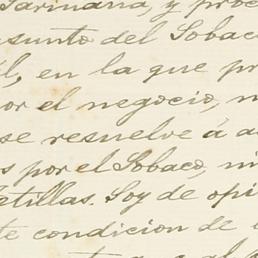 Farinaria, y proc
sunto del Sobac
l, en la que pr
or el negocio, n
se resuelve á a
s por el Sobaco, ni
etillas. Soy de opi
te condicion de